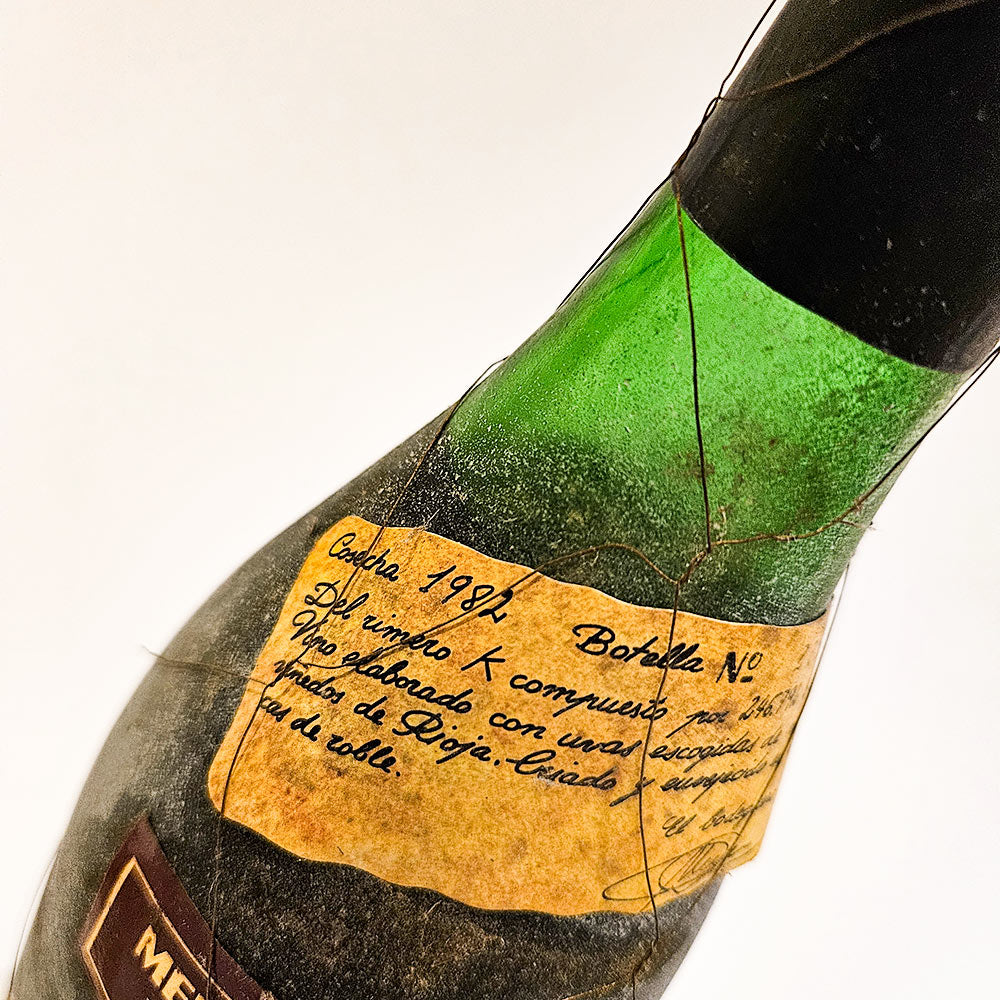 Cosecha 1982 Botella Nº
Del rimero K compuesto por 246.7
Vino elaborado con uvas escogidas de
viñedos de Rioja. Criado y envejecido
cas de roble.
El
ME